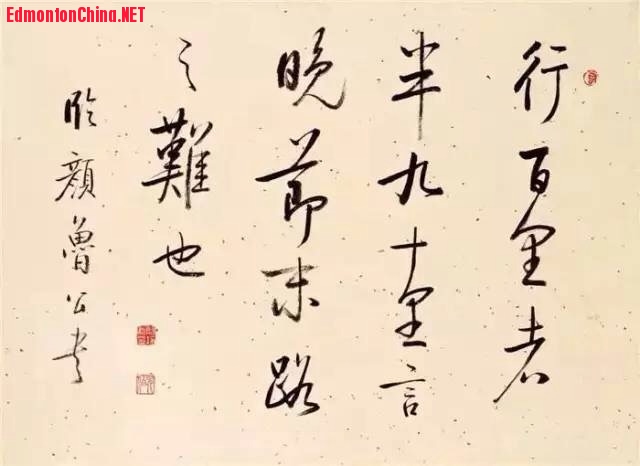 EdmontonChina.NET
行百里者
半九十里言
晚節末路
之難也
臨顏魯公書